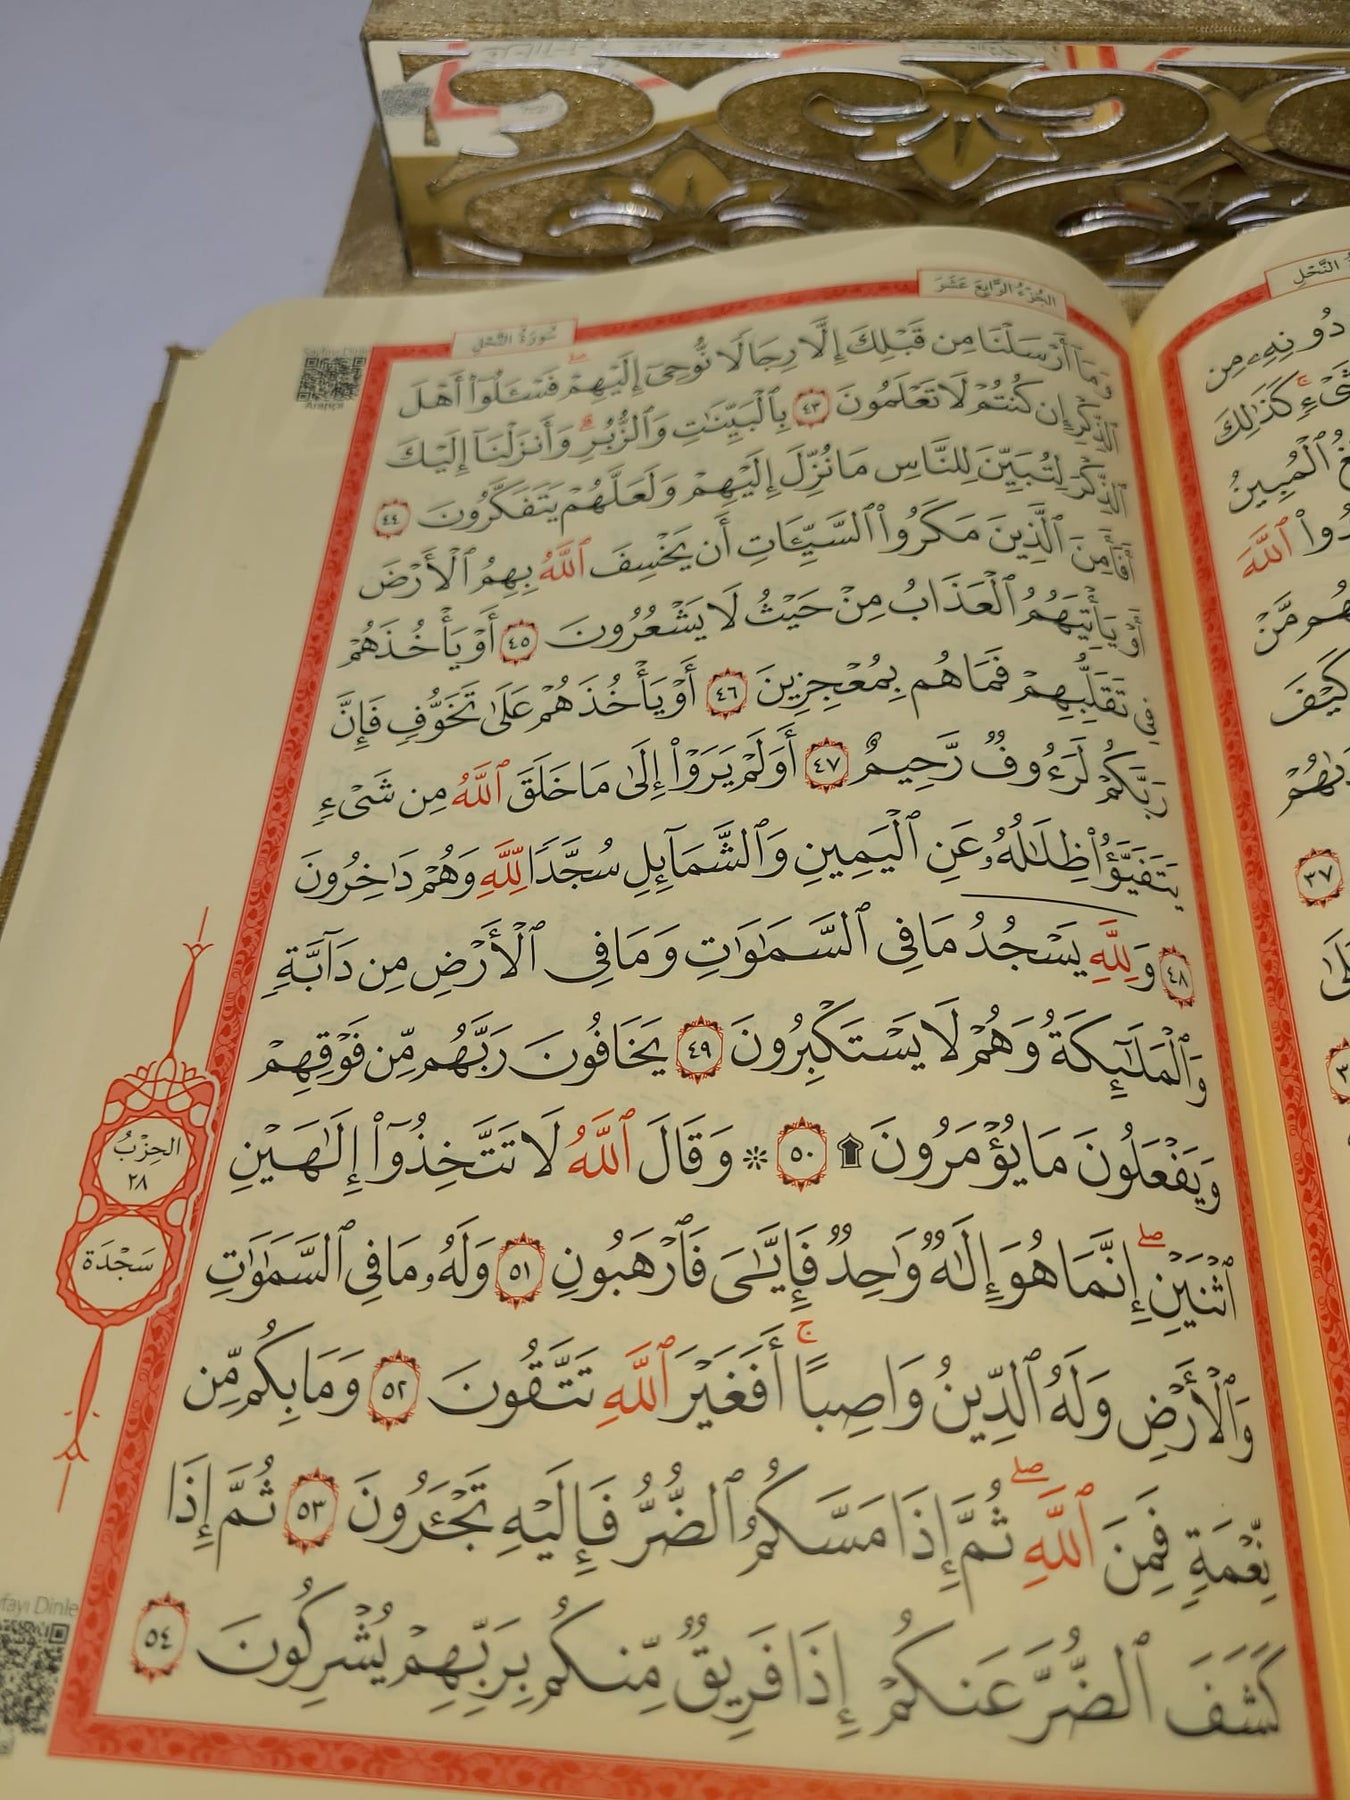 سُورَةُ النَّحْلِ
الجُزْءُ الرَّابِعَ عَشَرَ
وَمَآ أَرْسَلْنَا مِن قَبْلِكَ إِلَّا رِجَالًا نُّوحِىٓ إِلَيْهِمْ ۖ فَسْـَٔلُوٓا۟ أَهْلَ
ٱلذِّكْرِ إِن كُنتُمْ لَا تَعْلَمُونَ ٤٣ بِٱلْبَيِّنَٰتِ وَٱلزُّبُرِ ۗ وَأَنزَلْنَآ إِلَيْكَ
ٱلذِّكْرَ لِتُبَيِّنَ لِلنَّاسِ مَا نُزِّلَ إِلَيْهِمْ وَلَعَلَّهُمْ يَتَفَكَّرُونَ ٤٤
أَفَأَمِنَ ٱلَّذِينَ مَكَرُوا۟ ٱلسَّيِّـَٔاتِ أَن يَخْسِفَ ٱللَّهُ بِهِمُ ٱلْأَرْضَ
أَوْ يَأْتِيَهُمُ ٱلْعَذَابُ مِنْ حَيْثُ لَا يَشْعُرُونَ ٤٥ أَوْ يَأْخُذَهُمْ
فِى تَقَلُّبِهِمْ فَمَا هُم بِمُعْجِزِينَ ٤٦ أَوْ يَأْخُذَهُمْ عَلَىٰ تَخَوُّفٍ فَإِنَّ
رَبَّكُمْ لَرَءُوفٌ رَّحِيمٌ ٤٧ أَوَلَمْ يَرَوْا۟ إِلَىٰ مَا خَلَقَ ٱللَّهُ مِن شَىْءٍ
يَتَفَيَّؤُا۟ ظِلَٰلُهُۥ عَنِ ٱلْيَمِينِ وَٱلشَّمَآئِلِ سُجَّدًا لِّلَّهِ وَهُمْ دَٰخِرُونَ
٤٨ وَلِلَّهِ يَسْجُدُ مَا فِى ٱلسَّمَٰوَٰتِ وَمَا فِى ٱلْأَرْضِ مِن دَآبَّةٍ
وَٱلْمَلَٰٓئِكَةُ وَهُمْ لَا يَسْتَكْبِرُونَ ٤٩ يَخَافُونَ رَبَّهُم مِّن فَوْقِهِمْ
وَيَفْعَلُونَ مَا يُؤْمَرُونَ ۩ ٥٠ ۞ وَقَالَ ٱللَّهُ لَا تَتَّخِذُوٓا۟ إِلَٰهَيْنِ
ٱثْنَيْنِ ۖ إِنَّمَا هُوَ إِلَٰهٌ وَٰحِدٌ فَإِيَّٰىَ فَٱرْهَبُونِ ٥١ وَلَهُۥ مَا فِى ٱلسَّمَٰوَٰتِ
وَٱلْأَرْضِ وَلَهُ ٱلدِّينُ وَاصِبًا ۚ أَفَغَيْرَ ٱللَّهِ تَتَّقُونَ ٥٢ وَمَا بِكُم مِّن
نِّعْمَةٍ فَمِنَ ٱللَّهِ ۖ ثُمَّ إِذَا مَسَّكُمُ ٱلضُّرُّ فَإِلَيْهِ تَجْـَٔرُونَ ٥٣ ثُمَّ إِذَا
كَشَفَ ٱلضُّرَّ عَنكُمْ إِذَا فَرِيقٌ مِّنكُم بِرَبِّهِمْ يُشْرِكُونَ ٥٤
الحِزْبُ
٢٨
سَجْدَة
النَّحْلِ
دُونِهِۦ مِن
كَذَٰلِكَ
ٱلْمُبِينُ
ٱللَّهَ
مَّنْ
كَيْفَ
٣٧